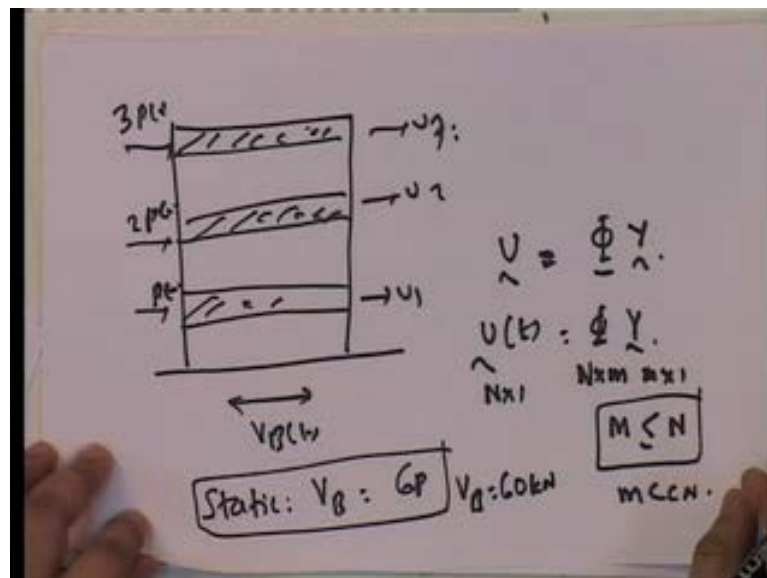 3P(t)
→ U3
2P(t)
→ U2
P(t)
→ U1
U = Φ Y.
U(t) = Φ Y.
N×1 N×m m×1
V_B(t)
M ≤ N
m << N.
Static: V_B = 6P
V_B = 60kN